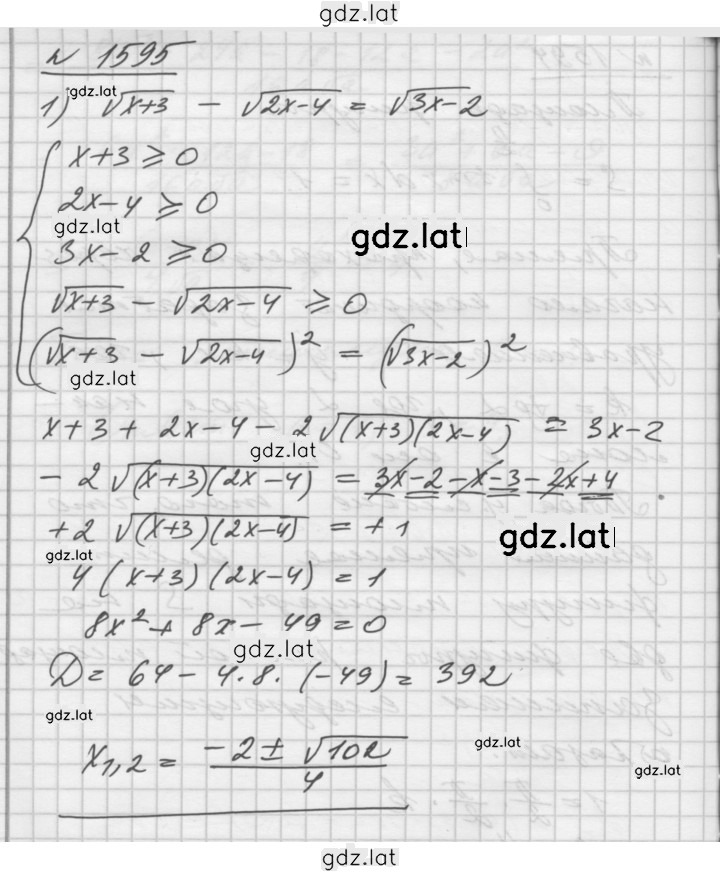 gdz.lat
№ 1595
gdz.lat
1) √(x+3) − √(2x−4) = √(3x−2)
{ x+3 ⩾ 0
2x−4 ⩾ 0
gdz.lat
gdz.lat
3x−2 ⩾ 0
√(x+3) − √(2x−4) ⩾ 0
(√(x+3) − √(2x−4))² = (√(3x−2))²
gdz.lat
x+3 + 2x−4 − 2√((x+3)(2x−4)) = 3x−2
gdz.lat
−2√((x+3)(2x−4)) = 3x−2−x−3−2x+4
+2√((x+3)(2x−4)) = +1
gdz.lat
gdz.lat
4(x+3)(2x−4) = 1
8x²+8x−49=0
gdz.lat
D = 64 − 4·8·(−49) = 392
gdz.lat
x₁,₂ = (−2 ± √102)/4
gdz.lat
gdz.lat
gdz.lat